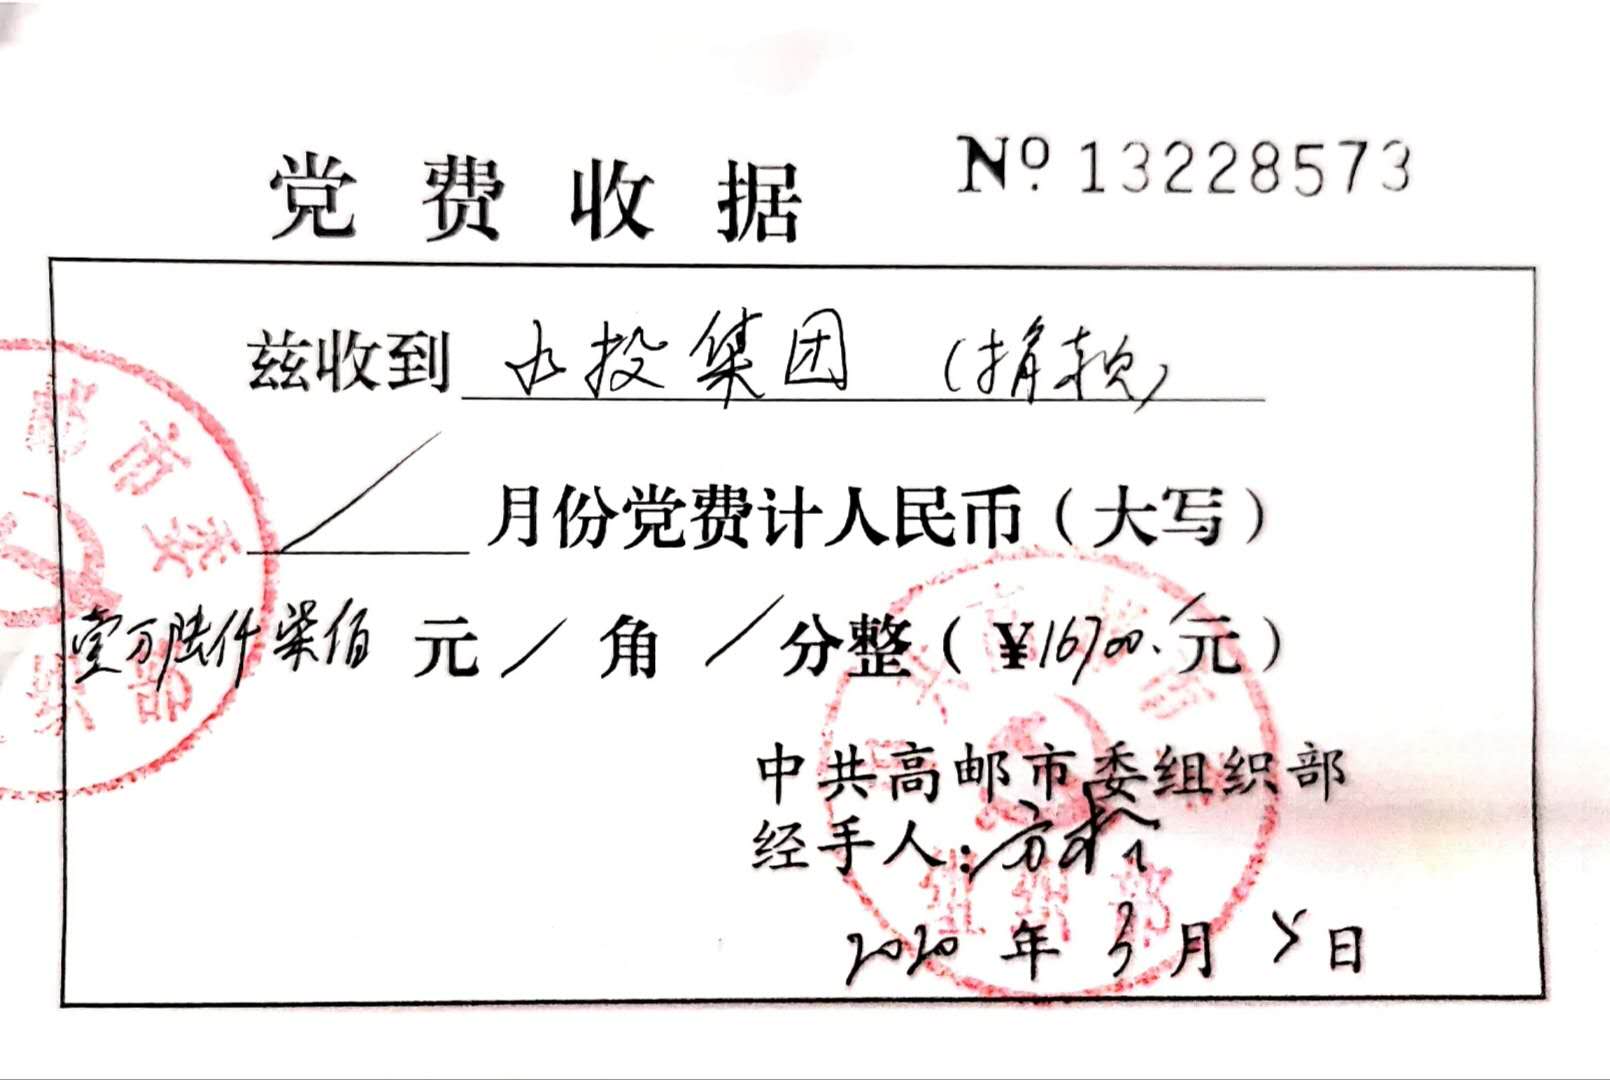 党费收据 № 13228573
兹收到 水投集团 (捐款)
/ 月份党费计人民币(大写)
壹万陆仟柒佰 元 / 角 / 分整(¥16700.元)
中共高邮市委组织部
经手人:
2020 年 3 月 5 日
市委
织部
组织部